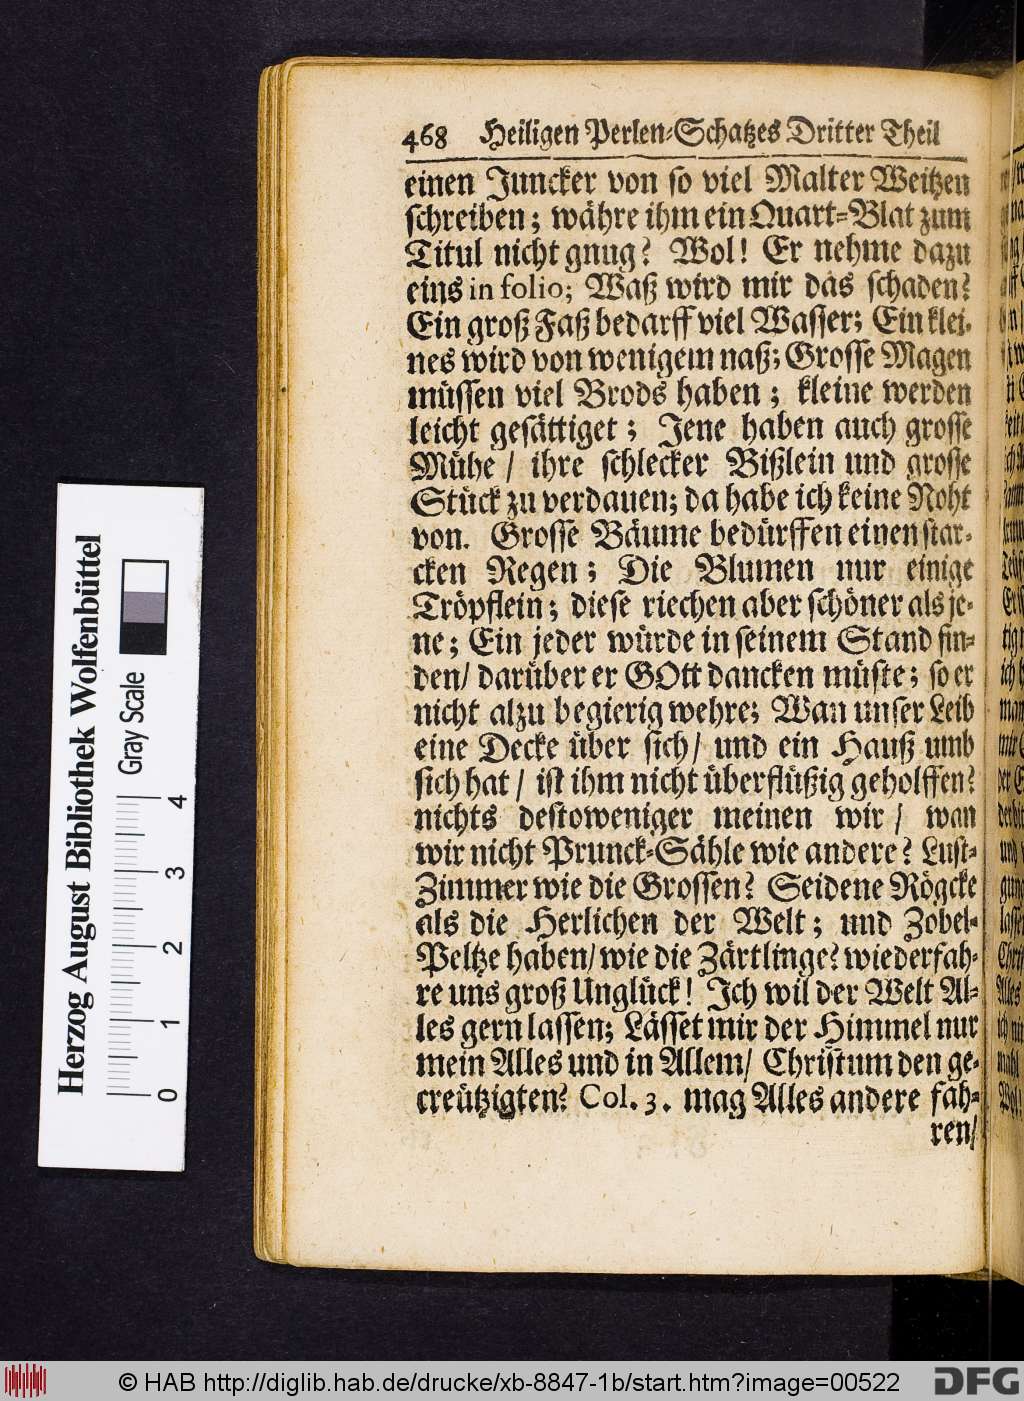 468 Heiligen Perlen-Schatzes Dritter Theil
einen Juncker von so viel Malter Weitzen
schreiben; währe ihm ein Quart-Blat zum
Titul nicht gnug? Wol! Er nehme dazu
eins in folio; Waß wird mir das schaden?
Ein groß Faß bedarff viel Wasser; Ein klei-
nes wird von wenigem naß; Grosse Magen
müssen viel Brods haben; kleine werden
leicht gesättiget; Jene haben auch grosse
Mühe / ihre schlecker Bißlein und grosse
Stück zu verdauen; da habe ich keine Noht
von. Grosse Bäume bedürffen einen star-
cken Regen; Die Blumen nur einige
Tröpflein; diese riechen aber schöner als je-
ne; Ein jeder würde in seinem Stand fin-
den/ darüber er GOtt dancken müste; so er
nicht alzu begierig wehre; Wan unser Leib
eine Decke über sich/ und ein Hauß umb
sich hat / ist ihm nicht überflüßig geholffen?
nichts destoweniger meinen wir / wan
wir nicht Prunck-Sähle wie andere? Lust-
Zimmer wie die Grossen? Seidene Rögcke
als die Herlichen der Welt; und Zobel-
Peltze haben/ wie die Zärtlinge? wiederfah-
re uns groß Unglück! Ich wil der Welt Al-
les gern lassen; Lässet mir der Himmel nur
mein Alles und in Allem/ Christum den ge-
creützigten? Col. 3. mag Alles andere fah-
ren/
Herzog August Bibliothek Wolfenbüttel
Gray Scale
0 1 2 3 4
© HAB http://diglib.hab.de/drucke/xb-8847-1b/start.htm?image=00522
DFG